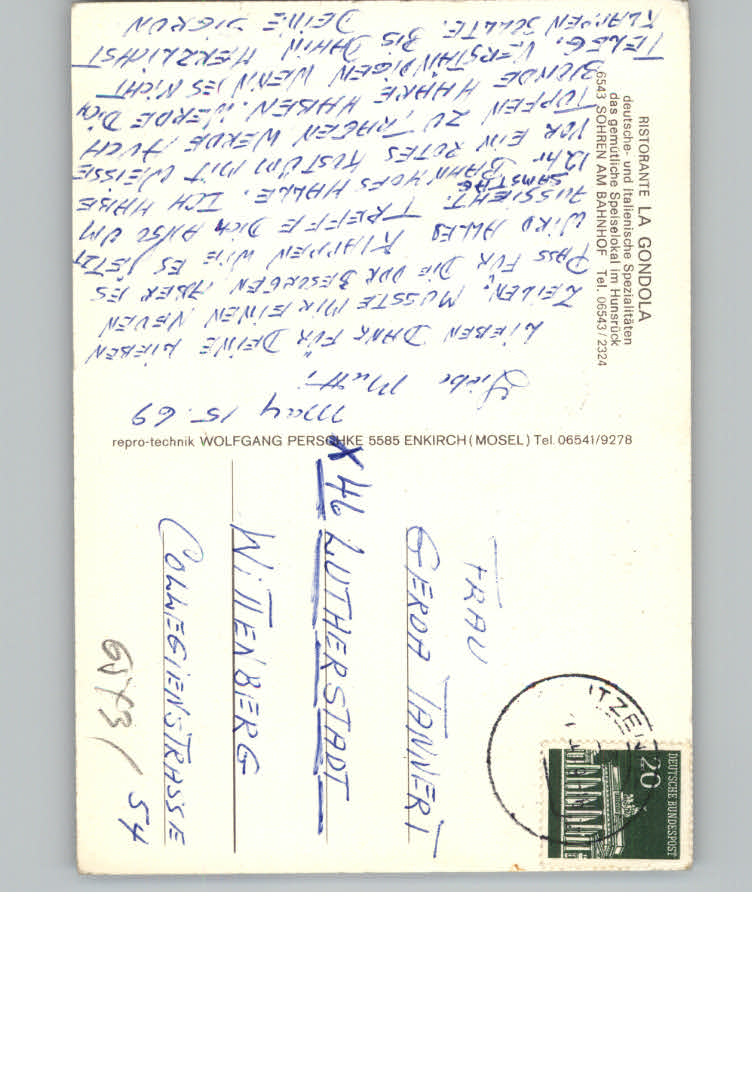 RISTORANTE LA GONDOLA
deutsche- und italienische Spezialitäten
das gemütliche Speiselokal im Hunsrück
6543 SOHREN AM BAHNHOF Tel. 06543/2324
repro-technik WOLFGANG PERSCHKE 5585 ENKIRCH (MOSEL) Tel. 06541/9278
May 15. 69
Liebe Mutti
LIEBEN DANK FÜR DEINE LIEBEN
ZEILEN. MUSSTE MIR EINEN NEUEN
PASS FÜR DIE DDR BESORGEN ABER ES
WIRD ALLES KLAPPEN WIE ES JETZT
AUSSIEHT. TREFFE DICH ALSO UM
SAMSTAG
12 hr. BAHNHOFS HALLE. ICH HABE
VOR EIN ROTES KOSTÜM MIT WEISSE
TUPFEN ZU TRAGEN WERDE AUCH
BLONDE HAARE HABEN. WERDE DICH
TELEG. VERSTÄNDIGEN WENN ES NICHT
KLAPPEN SOLLTE. BIS DAHIN HERZLICHST
DEINE SIGRUN
FRAU
GERDA TANNERT
X 46 LUTHERSTADT
WITTENBERG
COLLEGIENSTRASSE
54
DEUTSCHE BUNDESPOST
20
ITZE